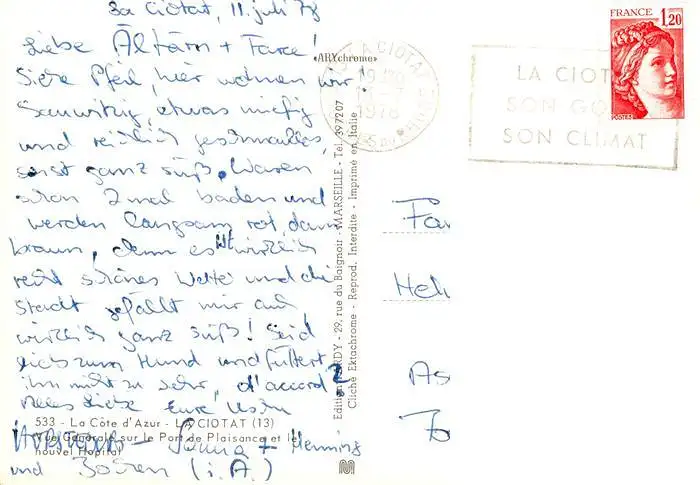 La Ciotat, 11. Juli 78
Liebe Ältärn + Farce!
Siehe Pfeil, hier wohnen wir!
Sauwitzig, etwas miefig
und reichlich geschmacklos,
sonst ganz süß. Waren
schon 2 mal baden und
werden langsam rot, dann
braun, denn es ist wirklich
recht schönes Wetter und die
Stadt gefällt mir auch
wirklich ganz süß! Seid
lieb zum Hund und füttert
ihn nicht zu sehr, d'accord?
Alles Liebe Eure
+ Henning
und (i. A.)
533 - La Côte d'Azur - LA CIOTAT (13)
Vue Générale sur le Port de Plaisance et le
nouvel Hôpital
«ARYchrome»
29, rue du Baignoir - MARSEILLE - Tel. 397207
Cliché Ektachrome - Reprod. Interdite - Imprimé en Italie
LA CIOTAT
1978
LA CIOT
SON GO
SON CLIMAT
FRANCE
1,20
POSTES
Fa
Hel
As